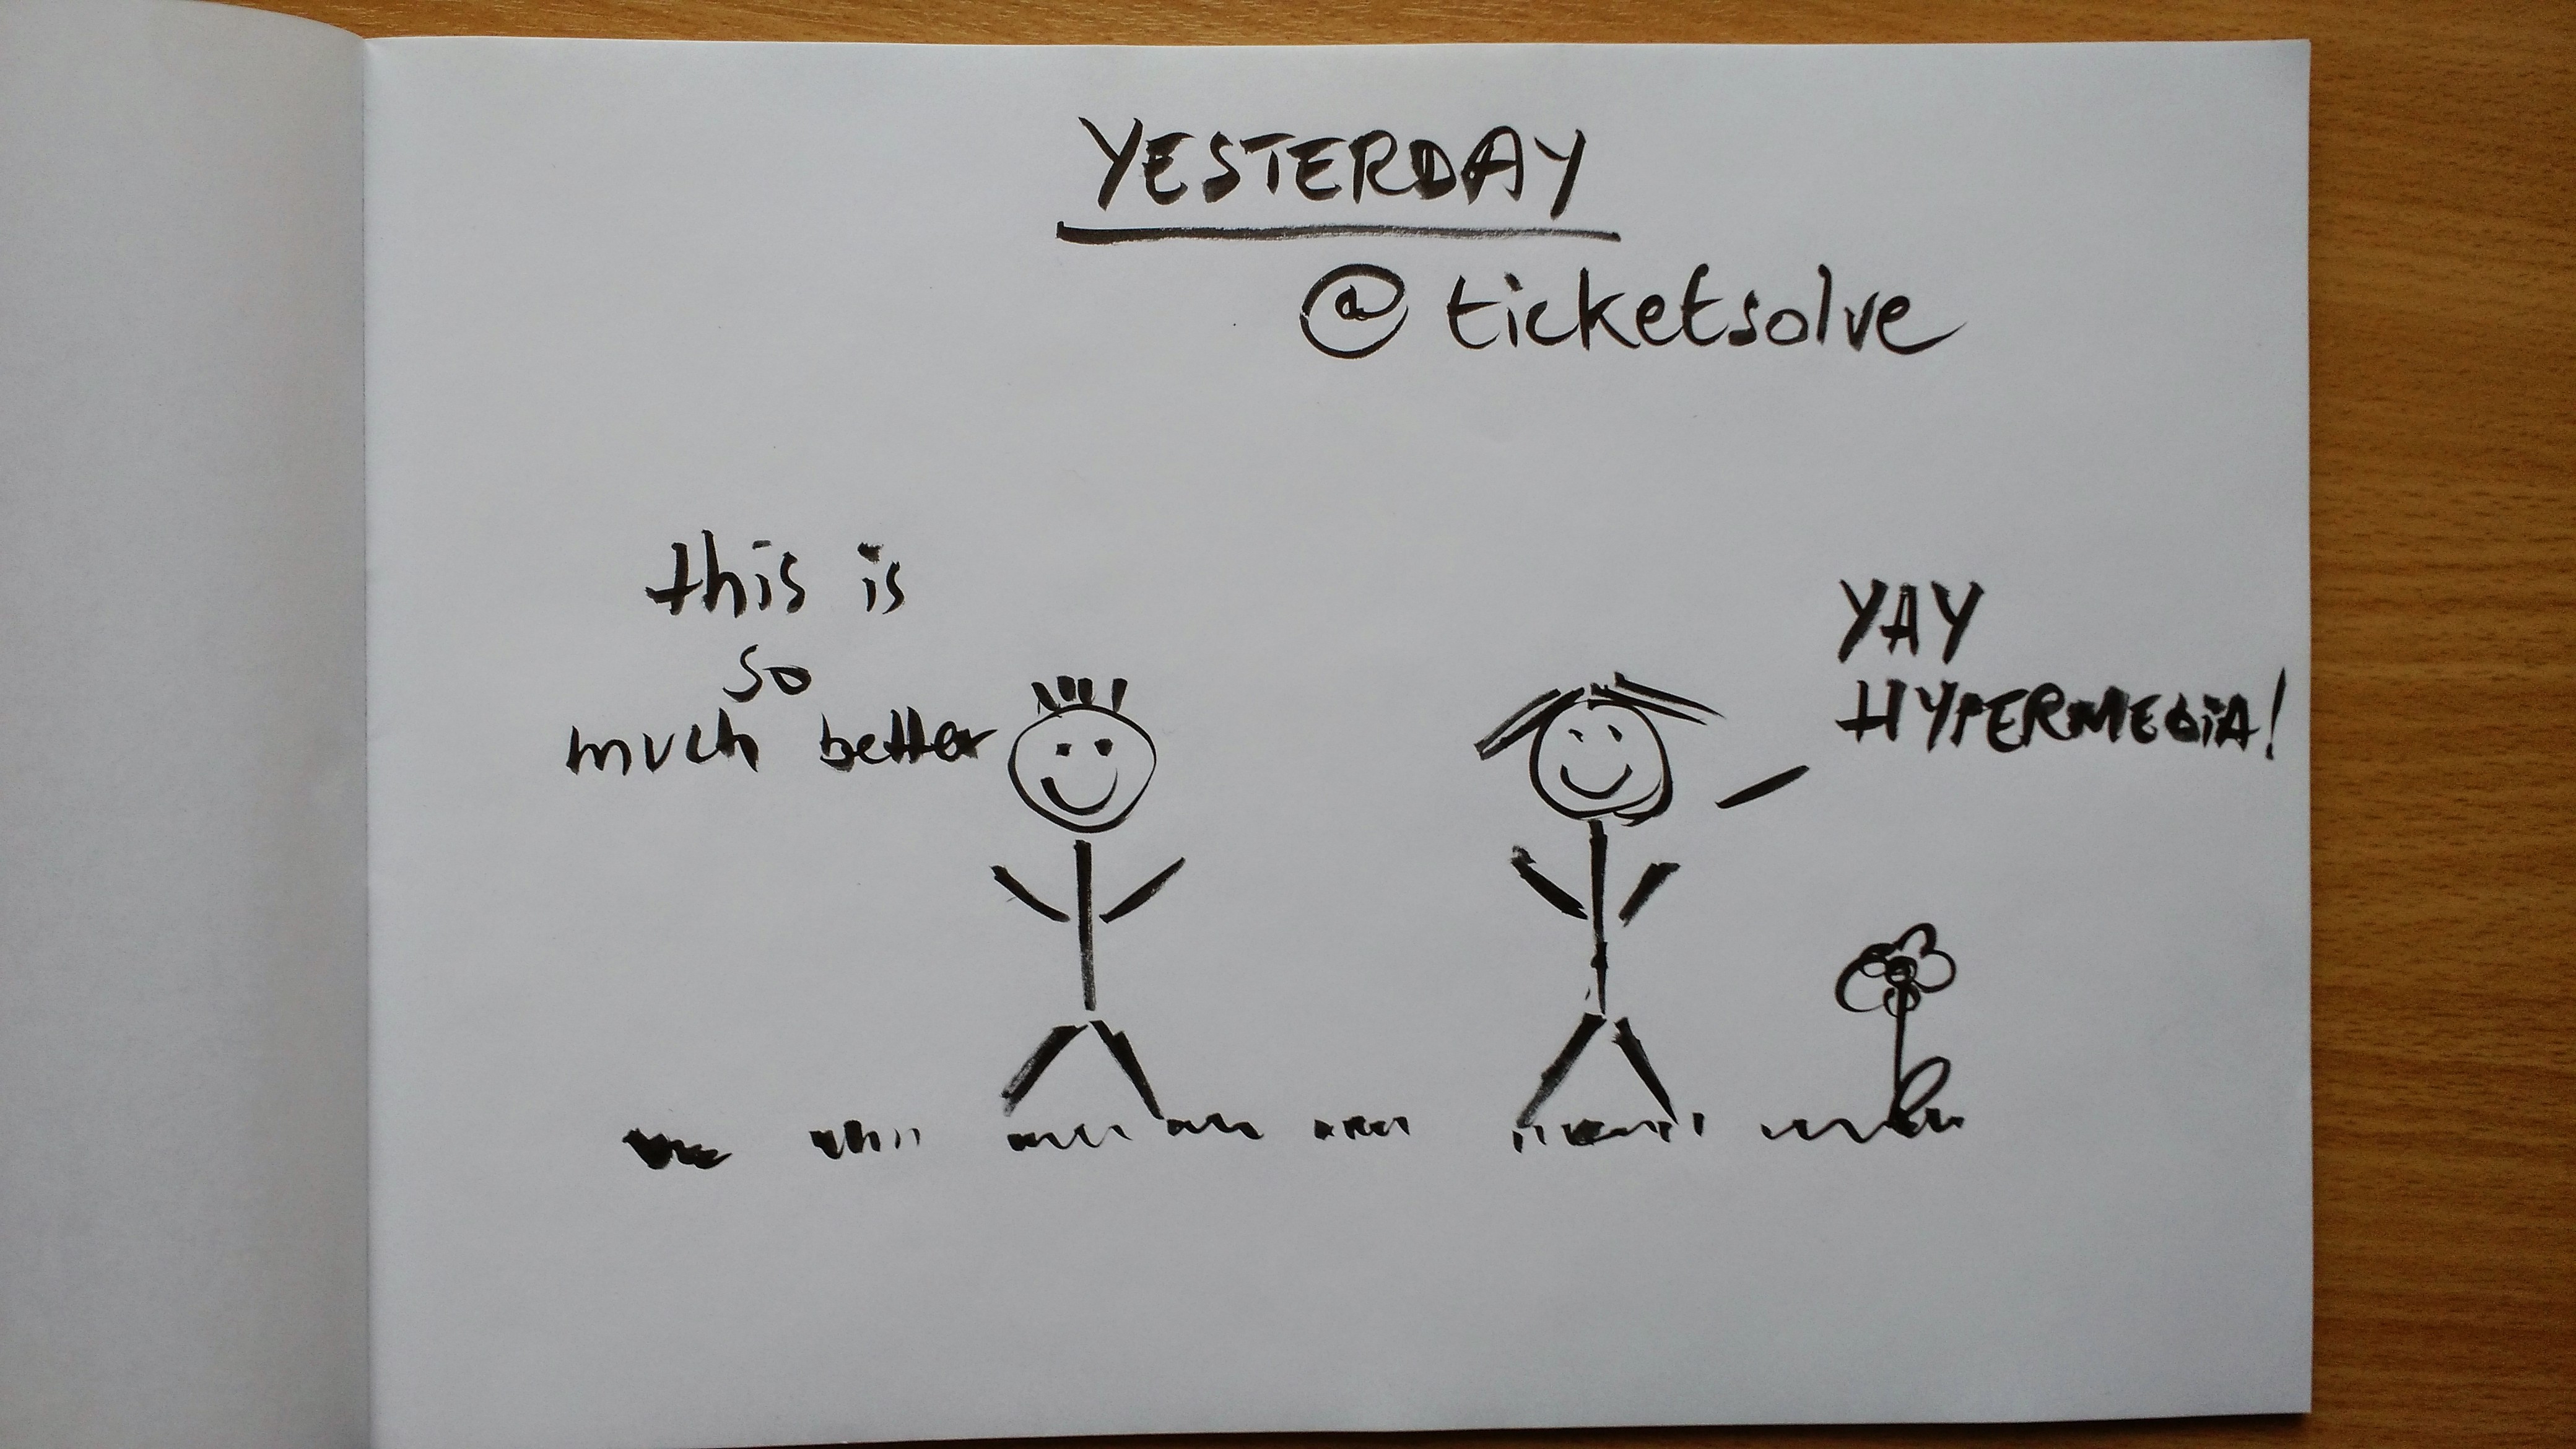 YESTERDAY
@ticketsolve
this is
so
much better
YAY
HYPERMEDIA!